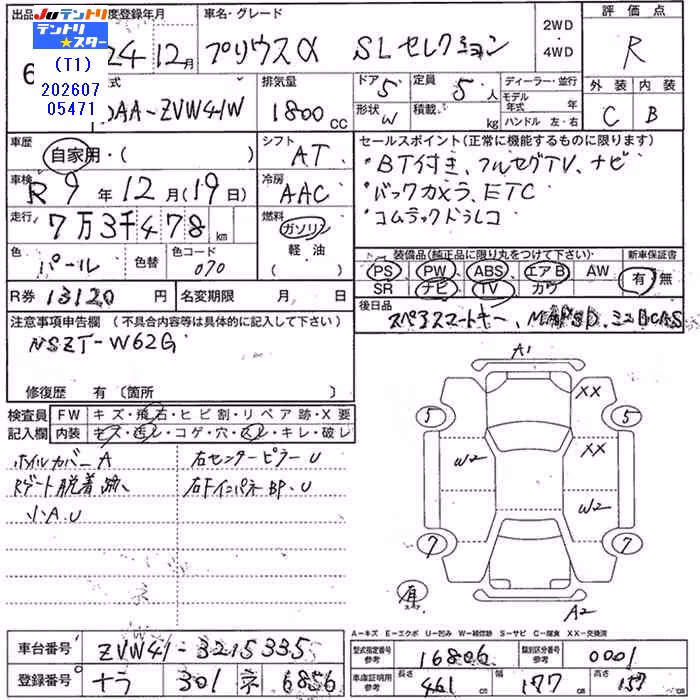 出品
JU テントリ
テントリ★スター
(T1)
202607
05471
度登録年月
24年12月
車名・グレード
プリウスα SLセレクション
2WD・4WD
評価点
R
外装 内装
C B
DAA-ZVW41W
排気量
1800 CC
ドア 5
定員 5人
形状 W
積載 kg
ディーラー・並行
モデル年式 年
ハンドル 左・右
車歴
自家用・( )
シフト
AT
車検
R9年12月(19日)
冷房
AAC
走行
7万3千478km
燃料
ガソリン
軽・油
( )
色
パール
色替
色コード
070
R券 13120円
名変期限 月 日
セールスポイント(正常に機能するものに限ります)
*BT付き、フルセグTV、ナビ
*バックカメラ、ETC
*コムテックドラレコ
装備品(純正品に限り丸をつけて下さい)
PS・PW・ABS・エアB・AW
SR・ナビ・TV・カワ
新車保証書
有・無
後日品
スペアスマートキー、
注意事項申告欄(不具合内容等は具体的に記入して下さい)
NSZT-W62G
修復歴 有〔箇所 〕
検査員記入欄
FW キズ・飛石・ヒビ割・リペア跡・X要
内装 キズ・汚レ・コゲ・穴・スレ・キレ・破レ
ホイルカバーA
右センターピラーU
Rゲート脱着跡
右FインパネBP.U
小A.U
A1
XX
5
5
W2
XX
W2
7
7
有
A2
A-キズ E-エクボ U-凹み W-補修跡 S-サビ C-腐食 XX-交換済
車台番号 ZVW41-3215335
登録番号 ナラ 301 6856
型式指定番号 参考 16806
類別区分番号 参考 0001
車庫証明用 参考
長さ 461
幅 177
高さ 157